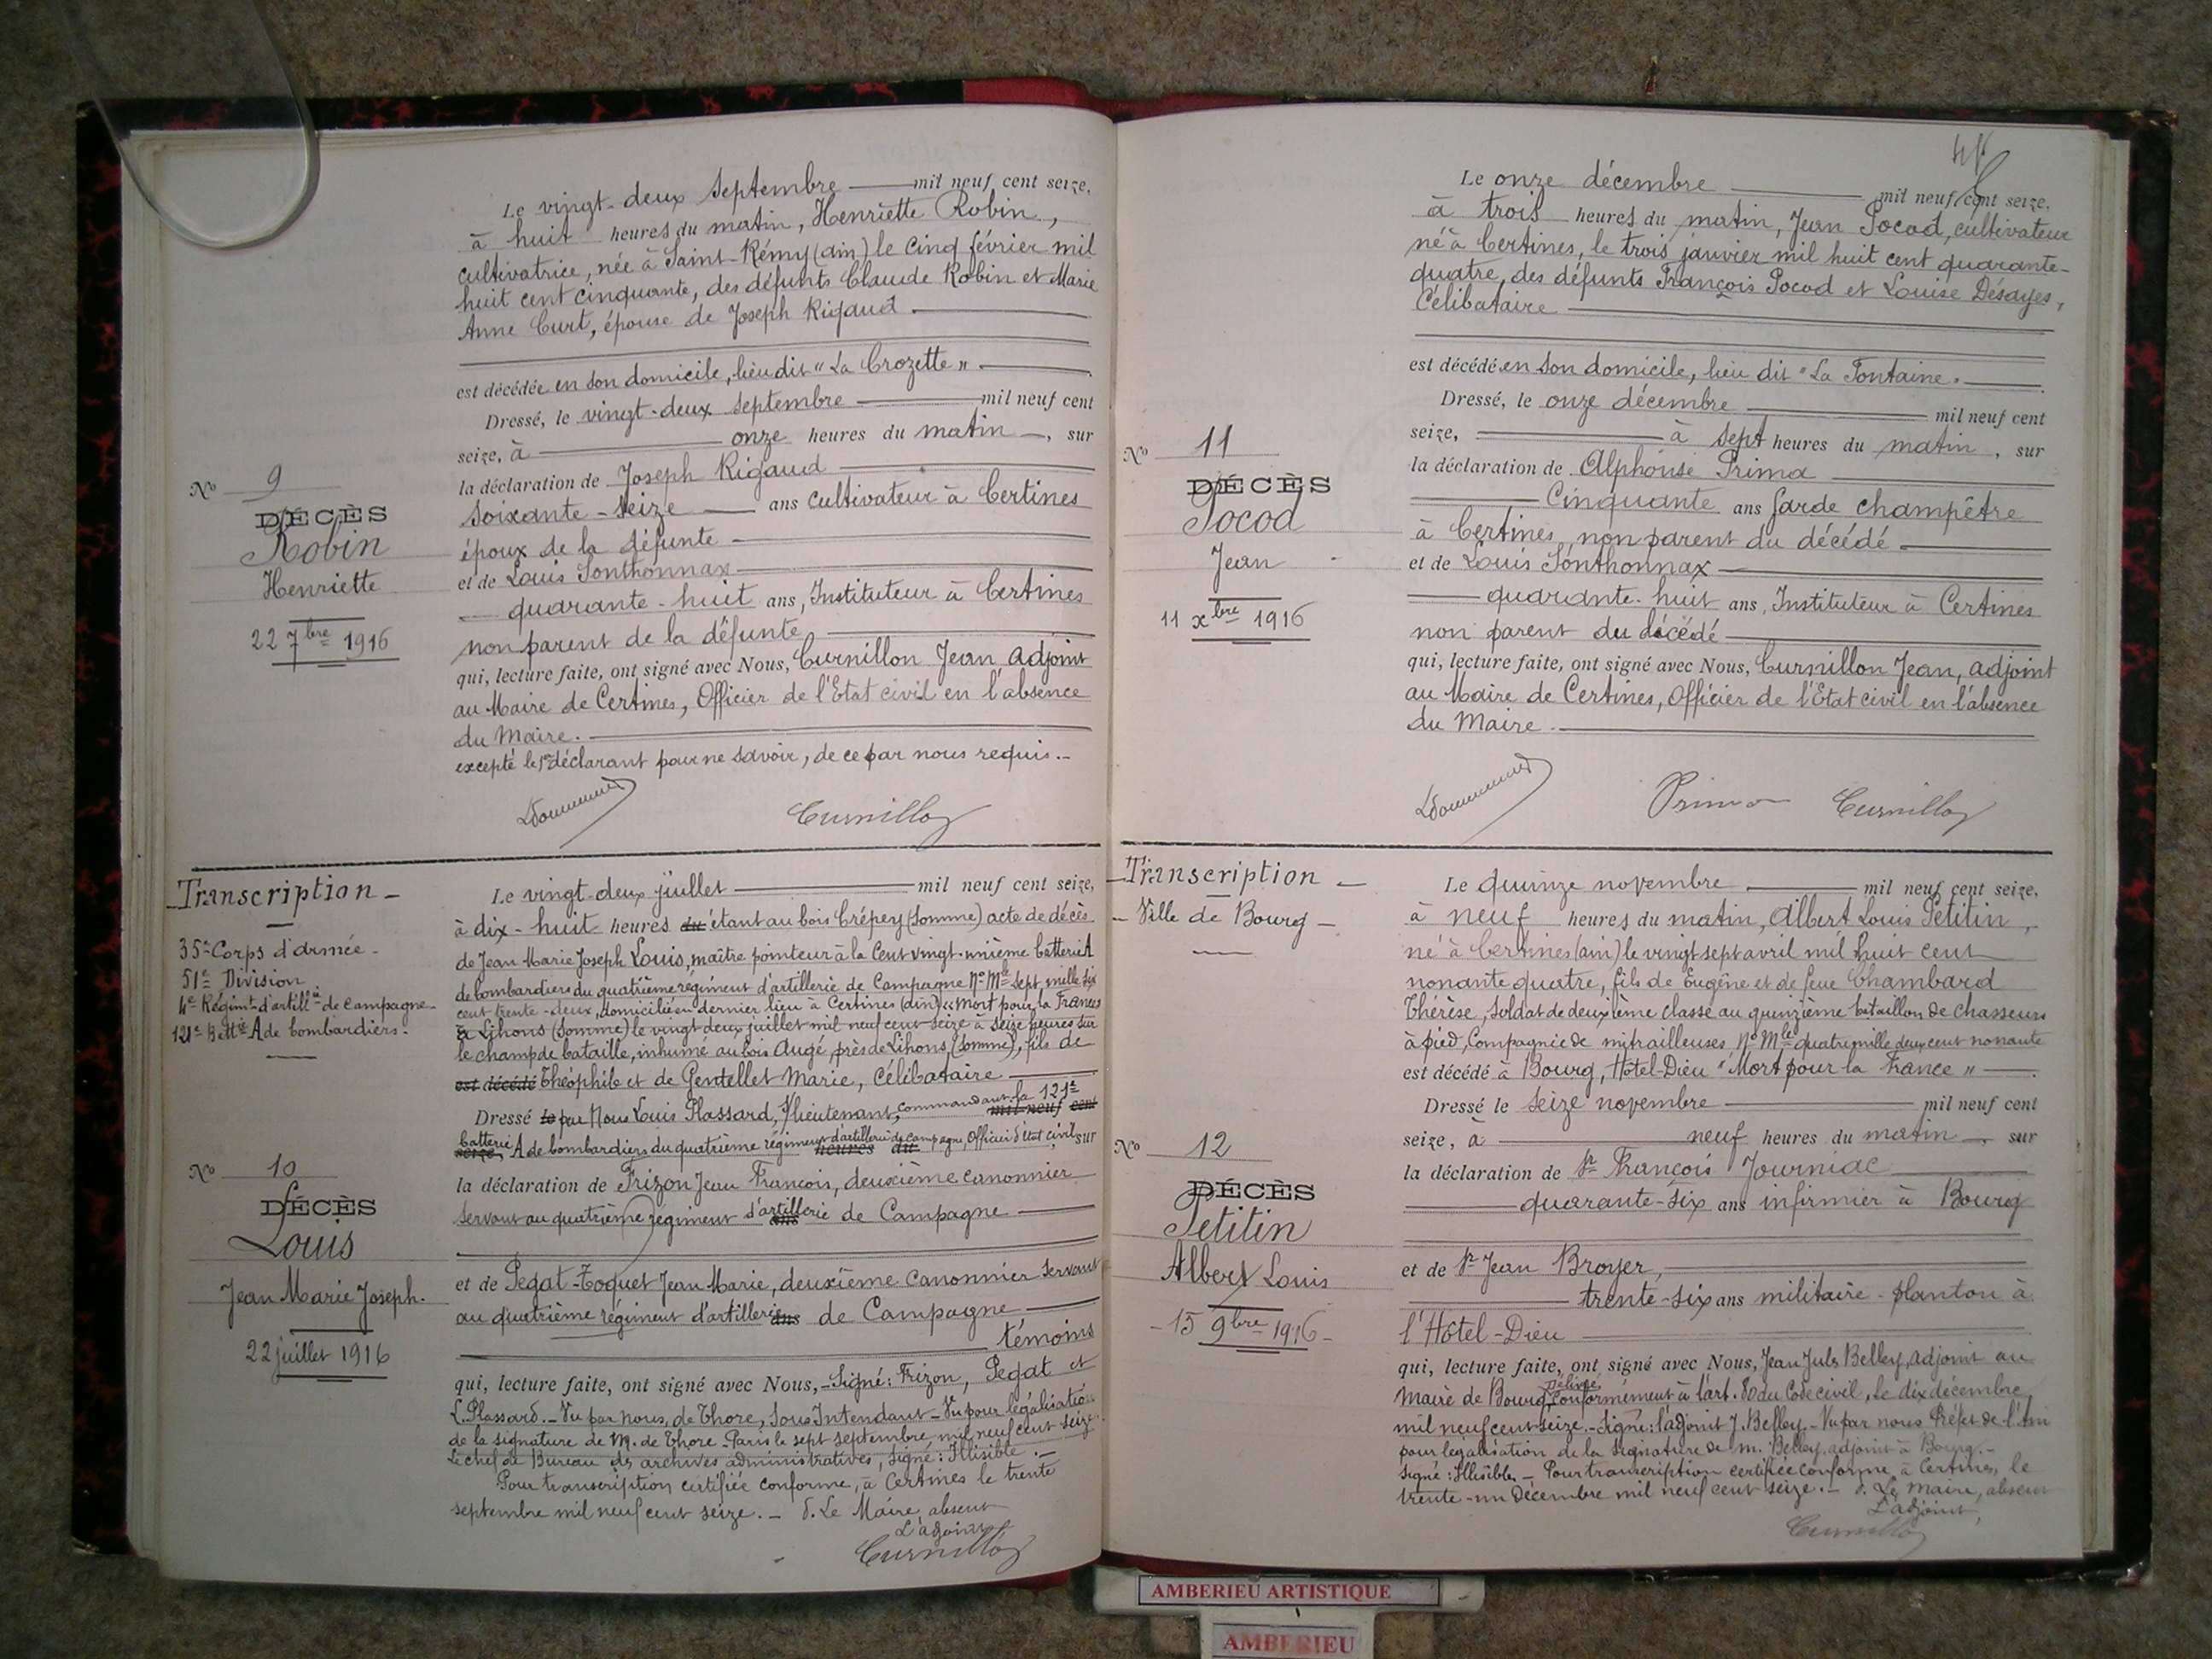 Le vingt-deux Septembre mil neuf cent seize,
à huit heures du matin, Henriette Robin,
cultivatrice, née à Saint-Rémy (Ain) le cinq février mil
huit cent cinquante, des défunts Claude Robin et Marie
Anne Curt, épouse de Joseph Rigaud.
est décédée en son domicile, lieu dit "La Crozette"
Dressé, le vingt-deux septembre mil neuf cent
seize, à onze heures du matin, sur
la déclaration de Joseph Rigaud
soixante-seize ans cultivateur à Certines
époux de la défunte
et de Louis Sonthonnax
quarante-huit ans, Instituteur à Certines
non parent de la défunte
qui, lecture faite, ont signé avec Nous, Curnillon Jean adjoint
au Maire de Certines, Officier de l'Etat civil en l'absence
du Maire.
excepté le 1er déclarant pour ne savoir, de ce par nous requis.-
Curnillon
No 9
DÉCÈS
Robin
Henriette
22 7bre 1916
Transcription -
35e Corps d'armée -
51e Division
4e Régimt d'artillie de campagne -
121e Battie A de bombardiers -
No 10
DÉCÈS
Louis
Jean Marie Joseph.
22 juillet 1916
Le vingt-deux juillet mil neuf cent seize,
à dix-huit heures du étant au bois Crépey (Somme) acte de décès
de Jean Marie Joseph Louis, maître pointeur à la Cent vingt-unième batterie A
de bombardiers du quatrième régiment d'artillerie de Campagne No Mle sept mille six
cent trente-deux, domicilié en dernier lieu à Certines (Ain) "mort pour la France
à Lihons (Somme) le vingt deux juillet mil neuf cent seize à seize heures sur
le champ de bataille, inhumé au bois Augé, près de Lihons, (Somme), fils de
est décédé Théophile et de Gentellet Marie, Célibataire
Dressé le par Nous Louis Plassard, s/lieutenant, commandant la 121e mil neuf cent
batterie seize, A de bombardiers du quatrième régiment d'artillerie de campagne, Officier d'état civil heures du sur
la déclaration de Frizon Jean François, deuxième canonnier
servant au quatrième régiment d'artillerie ans de Campagne
et de Pegat-Toquet Jean Marie, deuxième canonnier servant
au quatrième régiment d'artillerie ans de Campagne
témoins
qui, lecture faite, ont signé avec Nous, - Signé: Frizon, Pegat et
L. Plassard. - Vu par nous, de Thore, Sous Intendant - Vu pour légalisation
de la signature de M. de Thore - Paris le sept septembre mil neuf cent seize
Le chef de Bureau des archives administratives, signé: Illisible. -
Pour transcription certifiée conforme, à Certines le trente
septembre mil neuf cent seize. - Le Maire, absent
L'adjoint
Curnillon
Le onze décembre mil neuf cent seize,
à trois heures du matin, Jean Pocod, cultivateur
né à Certines, le trois janvier mil huit cent quarante-
quatre, des défunts François Pocod et Louise Désayes,
Célibataire
est décédé en son domicile, lieu dit "La Fontaine".
Dressé, le onze décembre mil neuf cent
seize, à sept heures du matin, sur
la déclaration de Alphonse Prima
Cinquante ans Garde champêtre
à Certines, non parent du décédé
et de Louis Sonthonnax
quarante-huit ans, Instituteur à Certines
non parent du décédé
qui, lecture faite, ont signé avec Nous, Curnillon Jean, adjoint
au Maire de Certines, Officier de l'Etat civil en l'absence
du Maire.
Prima Curnillon
No 11
DÉCÈS
Pocod
Jean
11 xbre 1916
Transcription -
- Ville de Bourg -
No 12
DÉCÈS
Petitin
Albert Louis
- 15 9bre 1916 -
Le quinze novembre mil neuf cent seize,
à neuf heures du matin, Albert Louis Petitin,
né à Certines (Ain) le vingt sept avril mil huit cent
nonante quatre, fils de Eugène et de feue Chambard
Thérèse, Soldat de deuxième classe au quinzième bataillon de chasseurs
à pied, Compagnie de mitrailleuses No Mle quatre mille deux cent nonante
est décédé à Bourg, Hôtel-Dieu "Mort pour la France"
Dressé le seize novembre mil neuf cent
seize, à neuf heures du matin, sur
la déclaration de Sr François Journiac
quarante-six ans infirmier à Bourg
et de Sr Jean Broyer,
trente-six ans militaire-planton à
l'Hôtel-Dieu
qui, lecture faite, ont signé avec Nous, Jean Jules Belley, adjoint au
Maire de Bourg, Délivré conformément à l'art. 80 du Code civil, le dix décembre
mil neuf cent seize. - Signé: l'adjoint J. Belley. - Vu par nous Préfet de l'Ain
pour légalisation de la signature de M. Belley, adjoint à Bourg. -
Signé: Illisible - Pour transcription certifiée conforme, à Certines, le
trente-un Décembre mil neuf cent seize. - Le Maire, absent
L'adjoint,
Curnillon
AMBERIEU ARTISTIQUE
AMBERIEU